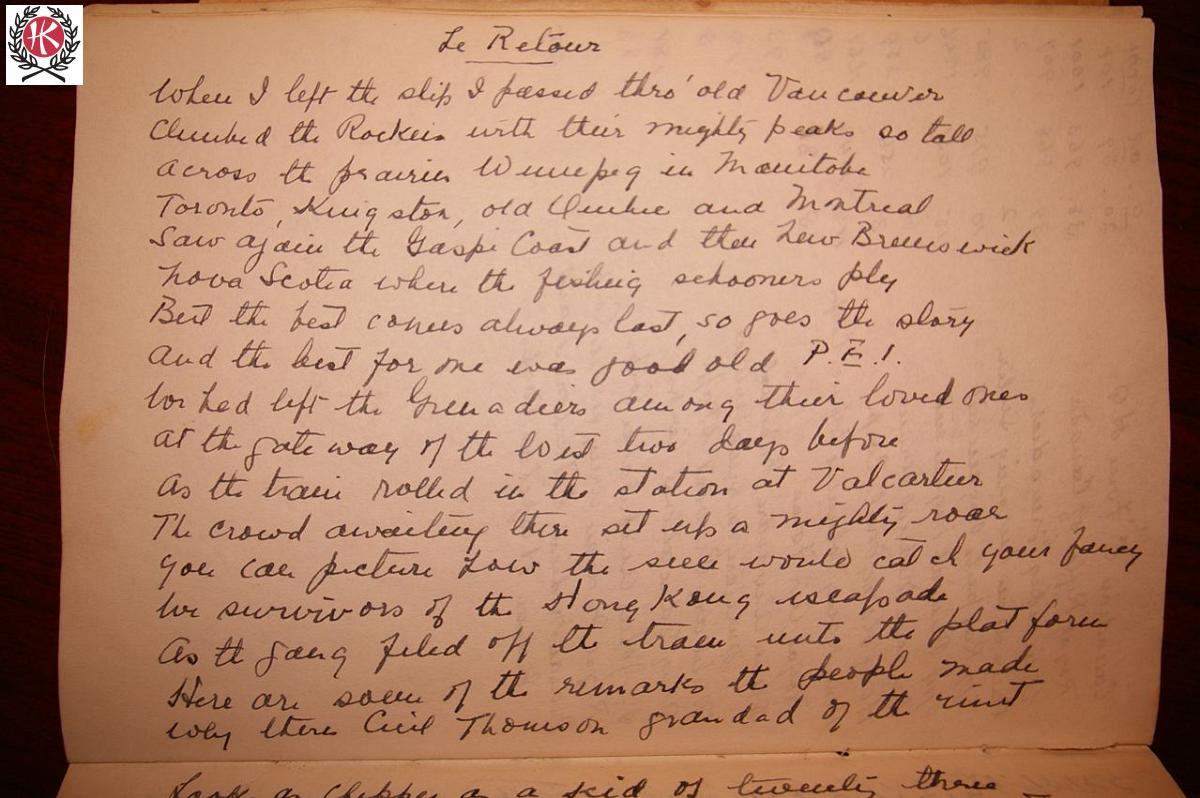 HK
Le Retour
When I left the ship I passed thro' old Vancouver
Climbed the Rockies with their mighty peaks so tall
Across the prairies Winnepeg in Manitoba
Toronto, Kingston, old Quebec and Montreal
Saw again the Gaspé Coast and then New Brunswick
Nova Scotia where the fishing schooners ply
But the best comes always last, so goes the story
And the best for me was good old P.E.I.
We had left the Grenadiers among their loved ones
At the gateway of the West two days before
As the train rolled in the station at Valcartier
The crowd awaiting there set up a mighty roar
You can picture how the scene would catch your fancy
We survivors of the Hong Kong escapade
As the gang filed off the train unto the platform
Here are some of the remarks the people made
Why there's Cecil Thomson grandad of the unit
Look as chipper as a kid of twenty three